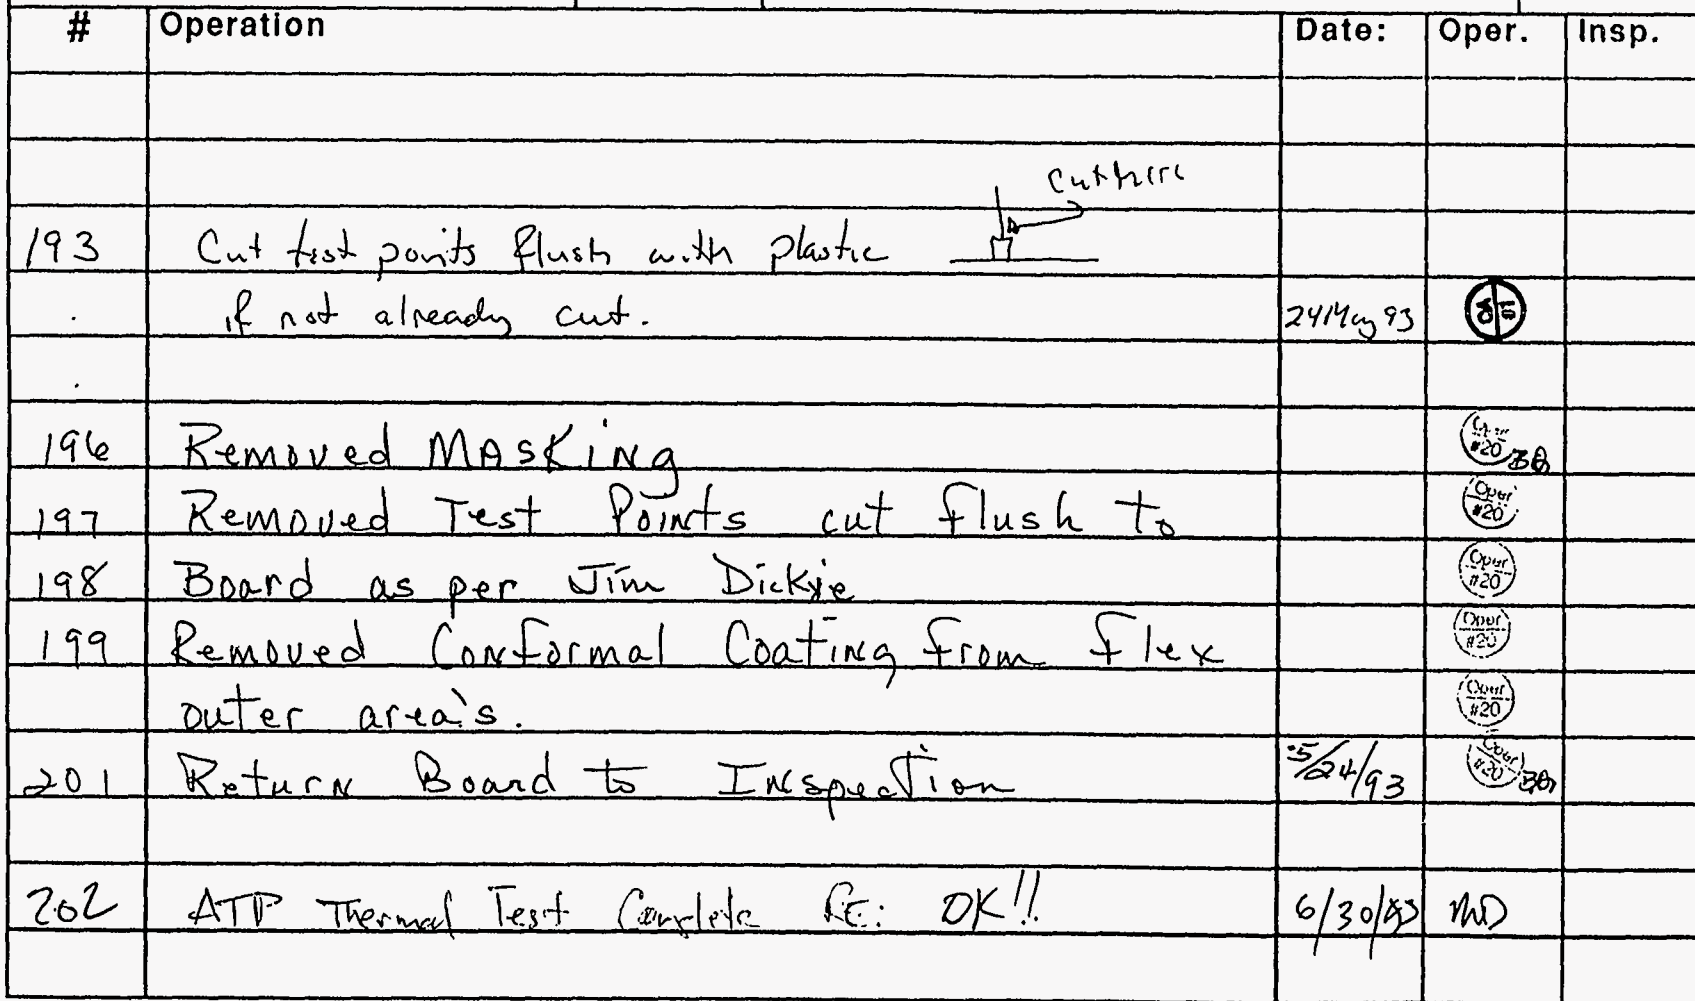 # Operation Date: Oper. Insp.
cut here
193 Cut test points flush with plastic
if not already cut. 24 May 93
196 Removed MASKing Oper #20
197 Removed Test Points cut flush to Oper #20
198 Board as per Jim Dickie Oper #20
199 Removed Conformal Coating from flex Oper #20
outer area's. Oper #20
201 Return Board to Inspection 5/24/93 Oper #20
202 ATP Thermal Test Complete RE: OK!! 6/30/93 MD